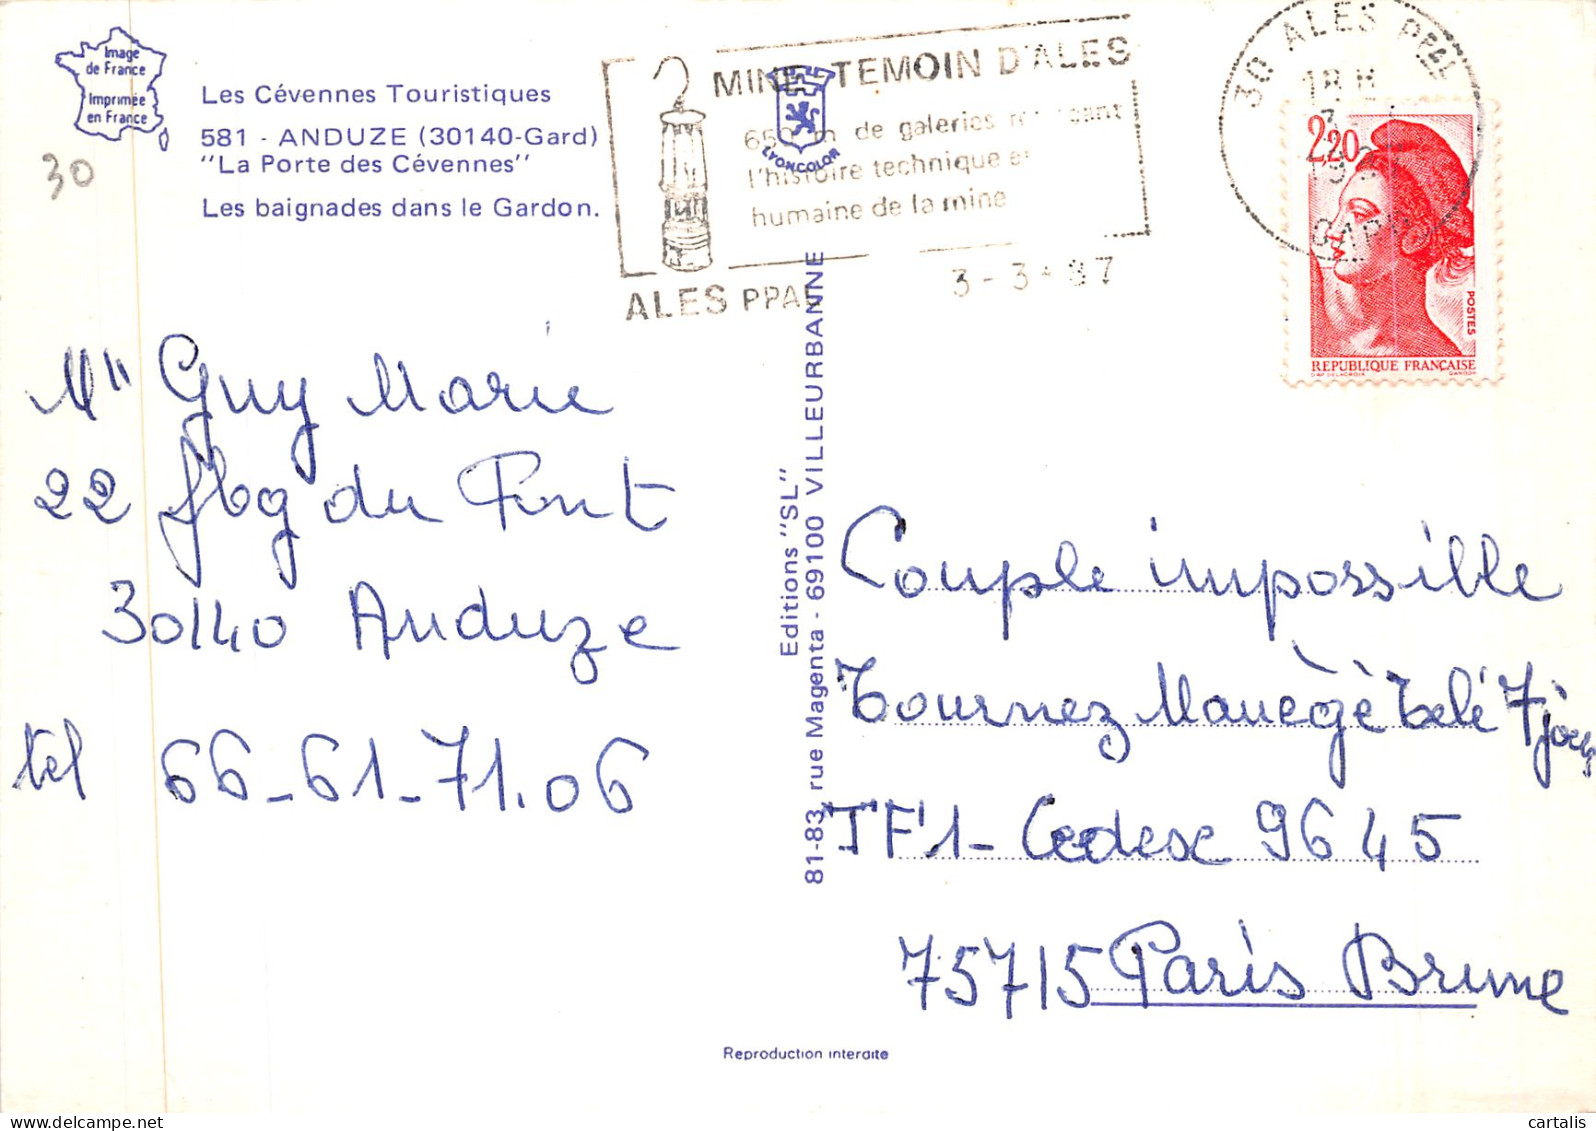 Image
de France
Imprimée
en France
30
Les Cévennes Touristiques
581 - ANDUZE (30140-Gard)
"La Porte des Cévennes"
Les baignades dans le Gardon.
MINE TEMOIN D'ALES
650 m de galeries
l'histoire technique et
humaine de la mine
ALES PPAL
3-3-87
LYONCOLOR
30 ALES PPAL
18 H
GARD
2,20
POSTES
REPUBLIQUE FRANÇAISE
D'AP DELACROIX GANDON
Mlle Guy Marie
22 fbg du Pont
30140 Anduze
tel 66-61-71.06
Editions "SL"
81-83, rue Magenta - 69100 VILLEURBANNE
Couple impossille
Tournez Manègè Télé 7 jours
TF1- Cedex 9645
75715 Paris Brune
Reproduction interdite
cartalis